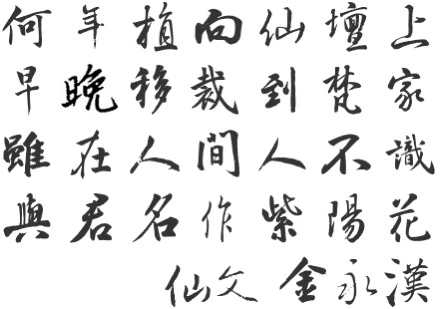 何年植向仙壇上
早晩移裁到梵家
雖在人間人不識
與君名作紫陽花
仙文 金永漢